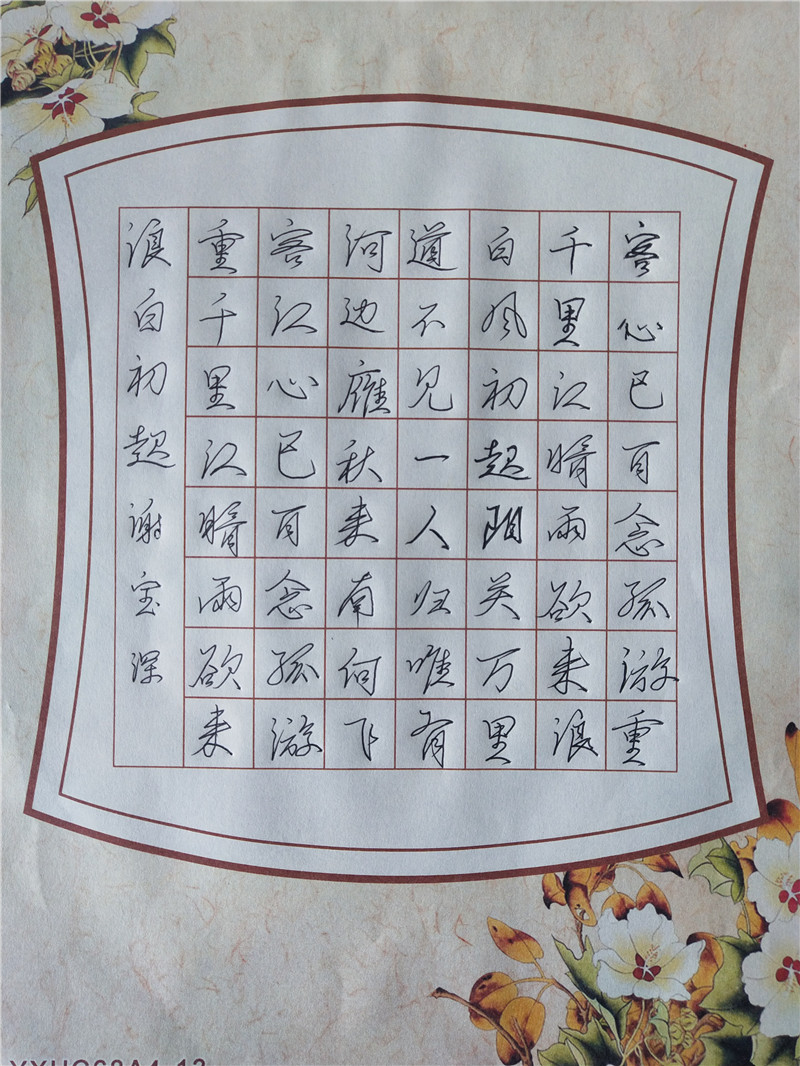 客心已百念孤游重
千里江暗雨欲来浪
白风初起阳关万里
道不见一人归唯有
河边雁秋来南何飞
客江心已百念孤游
重千里江暗雨欲来
浪白初起谢宝深